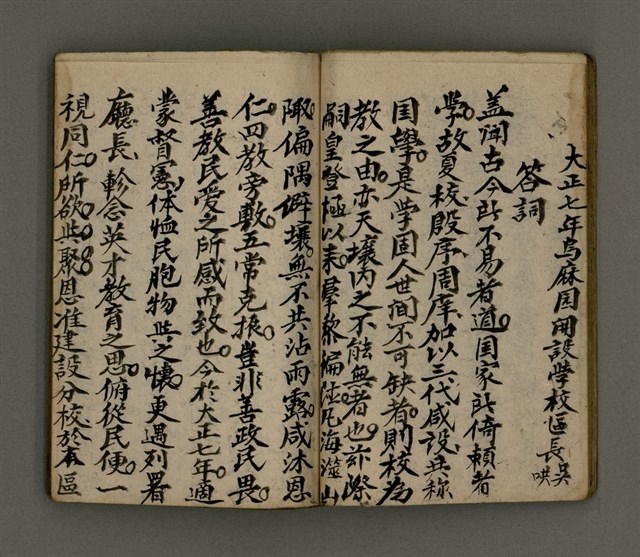 大正七年烏麻园開設学校區長吴哄
答詞
盖闻古今所不易者道国家所倚頼者
学故夏校殷序周庠加以三代咸设共称
国學是学固人世间不可缺者則校為
教之由亦天壤内之不能無者也兹際
嗣皇登極以来羣黎徧德凡海澨山
陬偏隅僻壤無不共沾雨露咸沐恩
仁四教旁敷五常克振豈非善政民畏
善教民爱之所感而致也今於大正七年適
蒙督憲体恤民胞物與之懷更遇列署
廳長軫念英才教育之思俯從民便一
視同仁所欲與聚恩准建設分校於本區